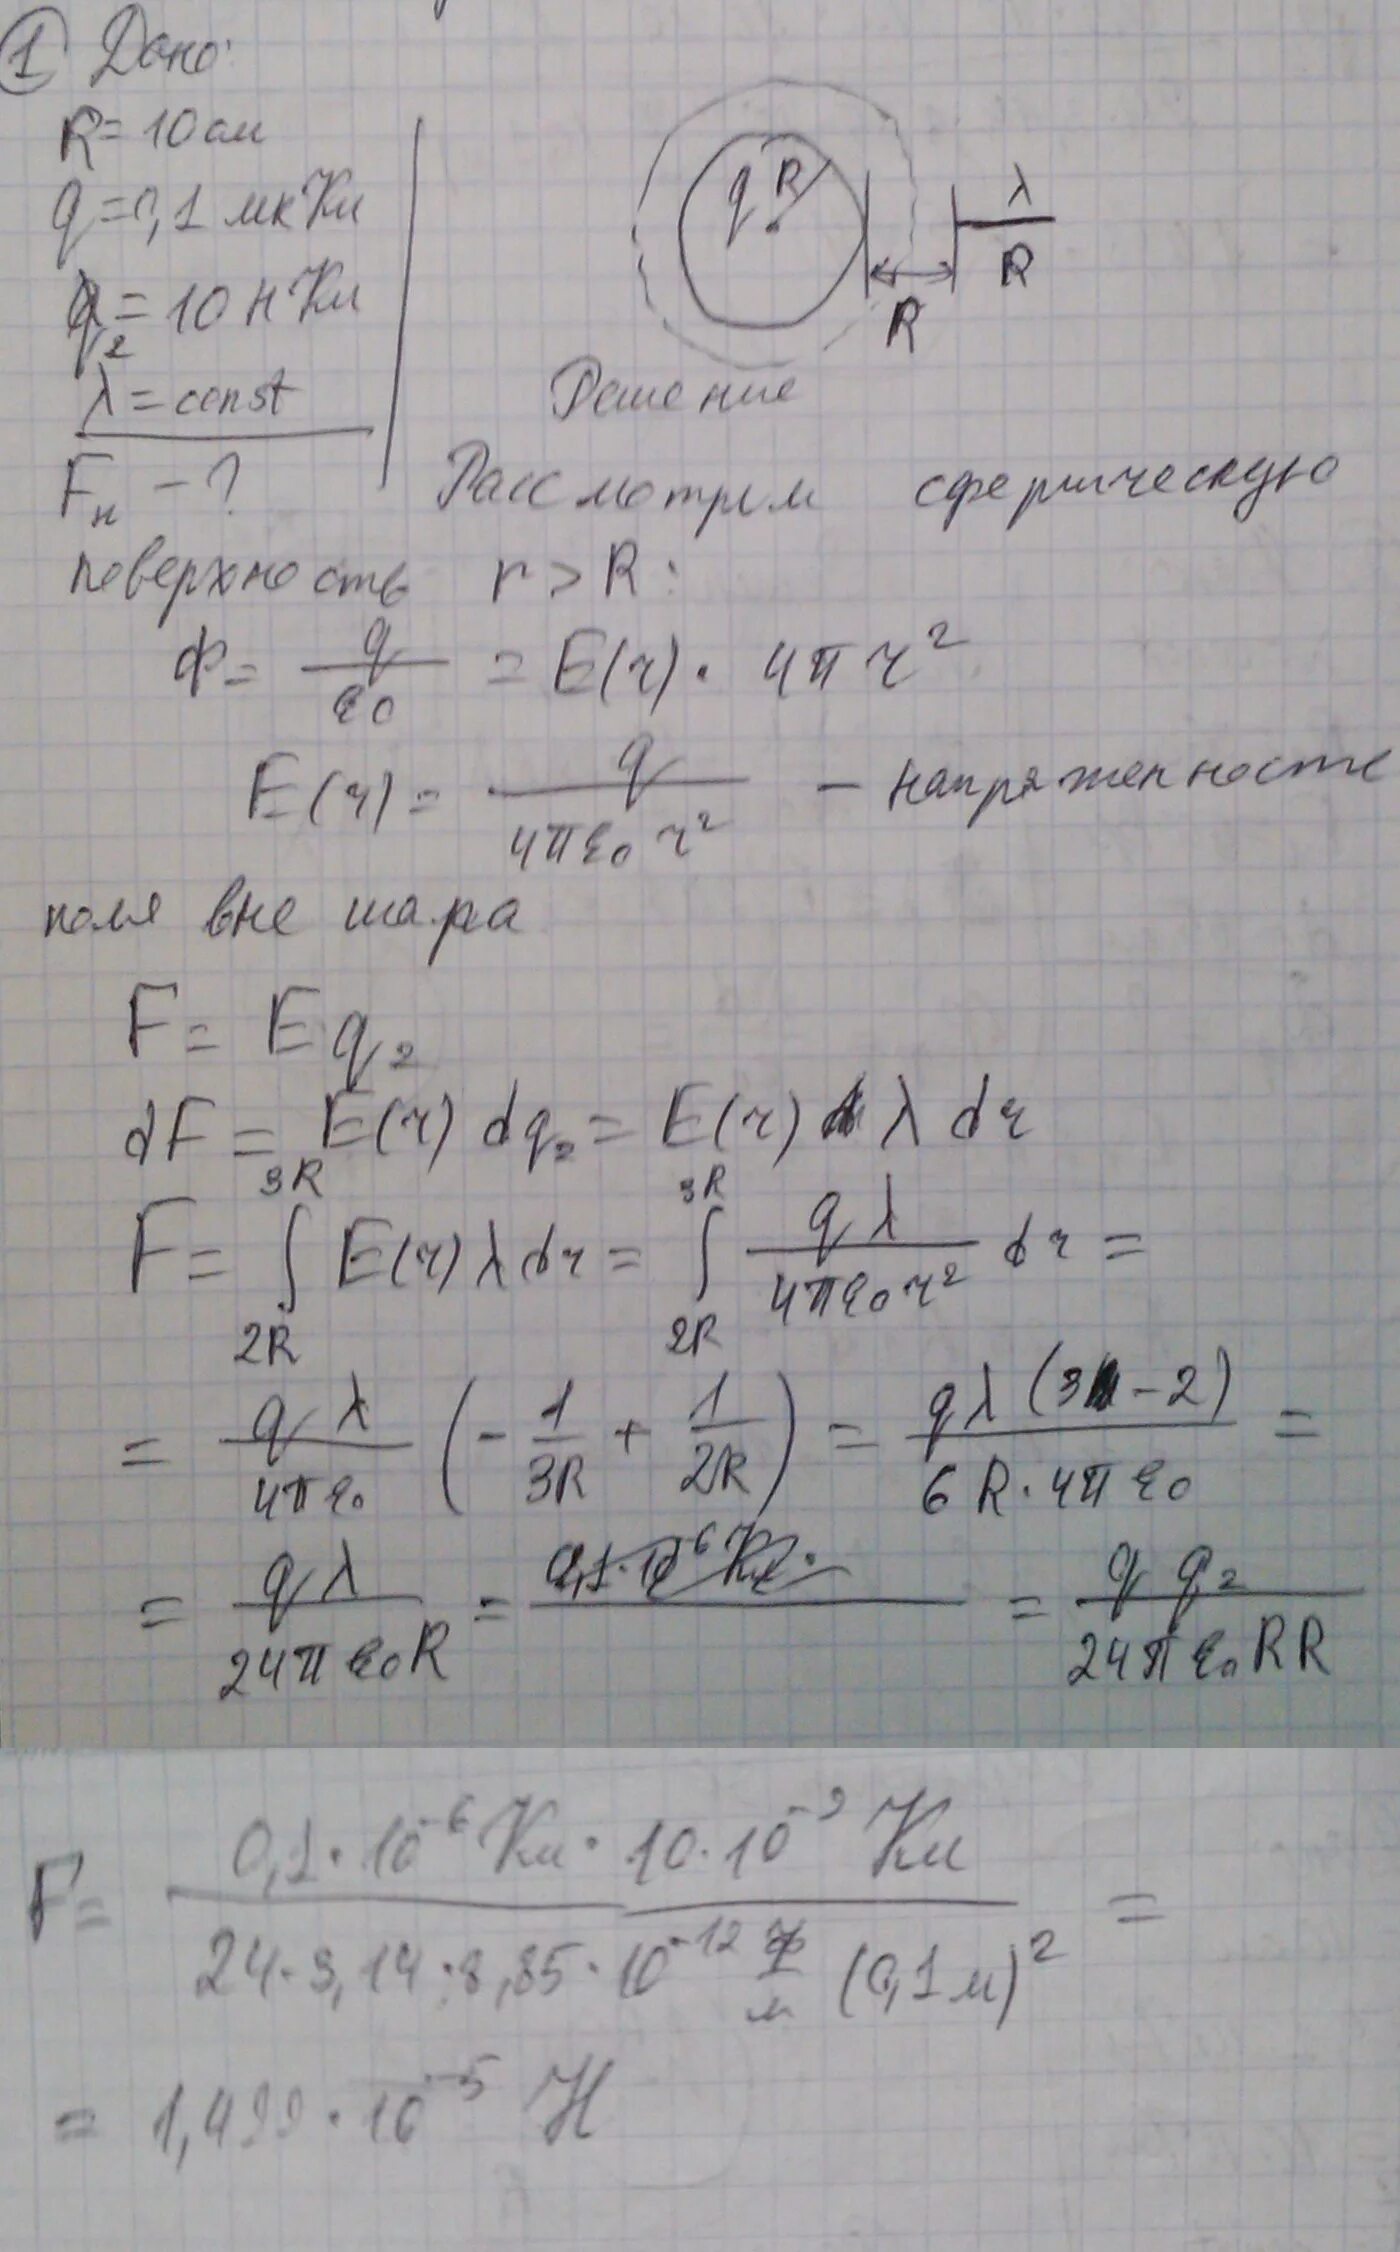 1 Дано:
R = 10 см
q = 0,1 мкКл
q₂ = 10 нКл
λ = const
Fн - ?
q R
λ
R
R
Решение
Рассмотрим сферическую
поверхность r > R:
Ф = q/ε₀ = E(r) · 4πr²
E(r) = q/(4πε₀r²) – напряженность
поля вне шара
F = Eq₂
dF = E(r) dq₂ = E(r) λ dr
F = ∫_{2R}^{3R} E(r) λ dr = ∫_{2R}^{3R} qλ/(4πε₀r²) dr =
= qλ/(4πε₀) (-1/3R + 1/2R) = qλ(3-2)/(6R·4πε₀) =
= qλ/(24πε₀R) = = q q₂/(24πε₀RR)
F = 0,1·10⁻⁶ Кл · 10·10⁻⁹ Кл/(24·3,14·8,85·10⁻¹² Ф/м (0,1м)²) =
= 1,499·10⁻⁵ Н